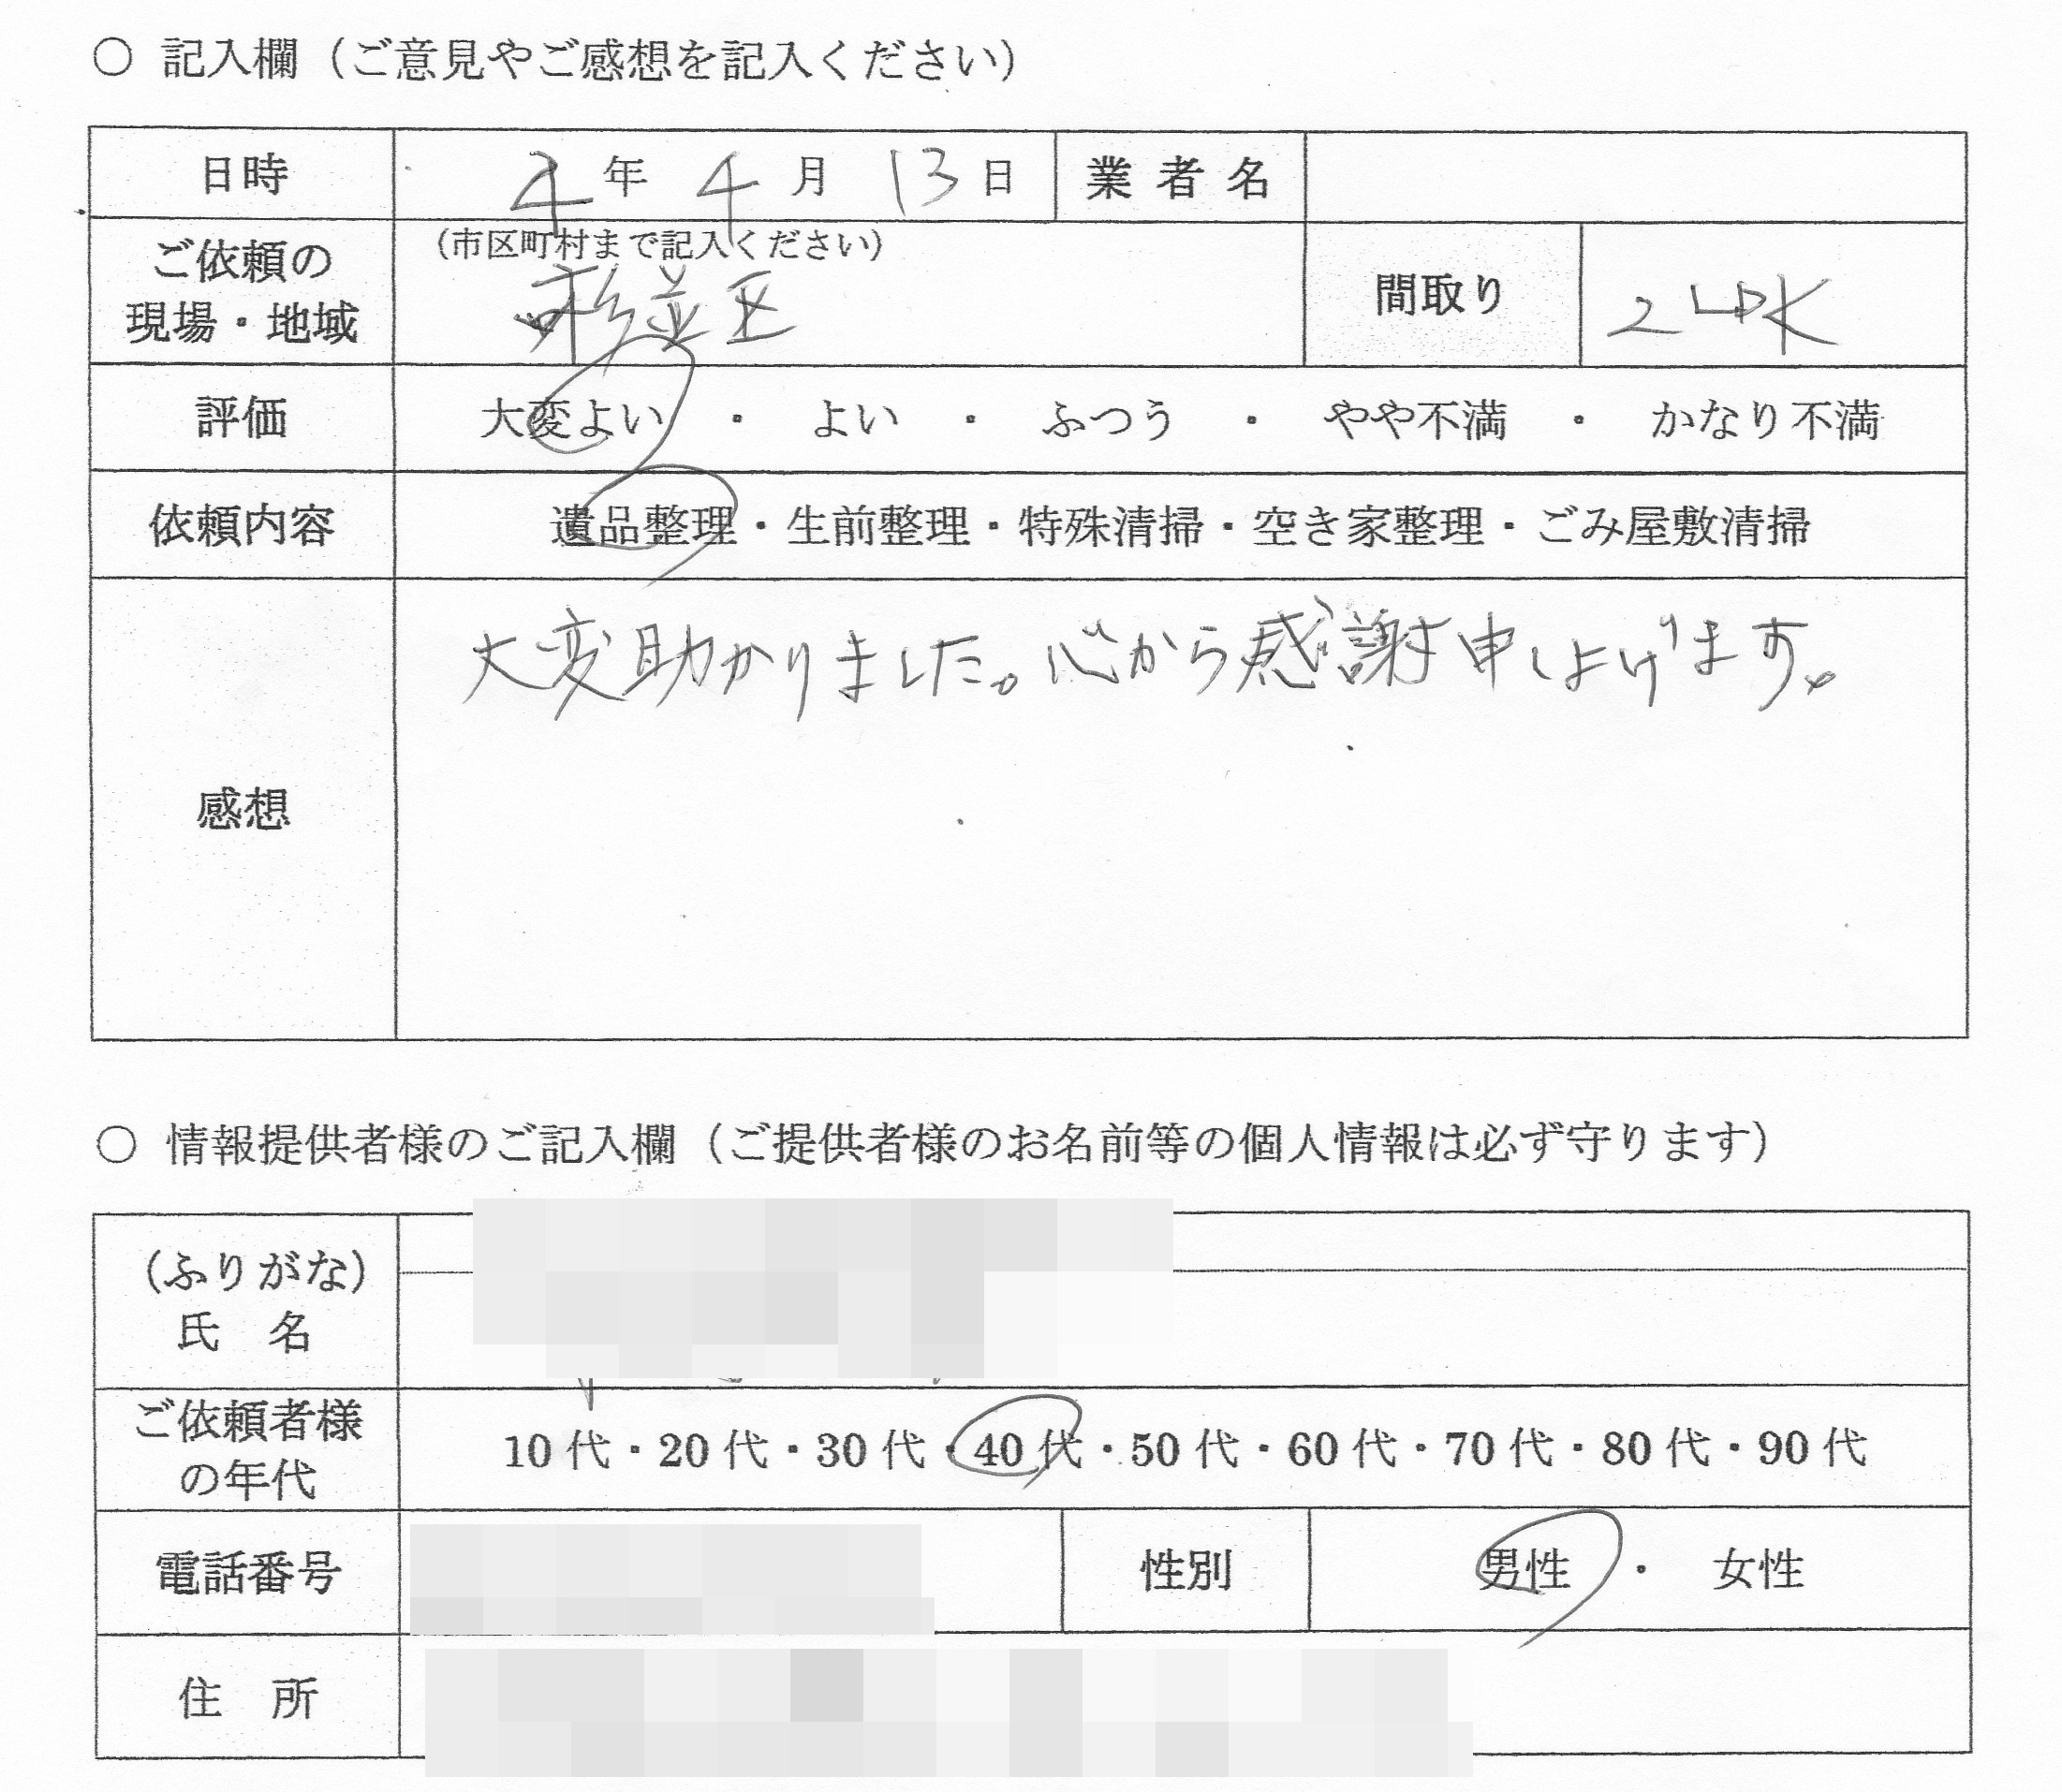 ○ 記入欄（ご意見やご感想を記入ください）
日時 年 4 月 13 日 業者名
ご依頼の
現場・地域
（市区町村まで記入ください）
杉並区
間取り 2LDK
評価 大変よい ・ よい ・ ふつう ・ やや不満 ・ かなり不満
依頼内容 遺品整理・生前整理・特殊清掃・空き家整理・ごみ屋敷清掃
感想 大変助かりました。心から感謝申し上げます。
○ 情報提供者様のご記入欄（ご提供者様のお名前等の個人情報は必ず守ります）
（ふりがな）
氏 名
ご依頼者様
の年代
10代・20代・30代・40代・50代・60代・70代・80代・90代
電話番号 性別 男性 ・ 女性
住 所